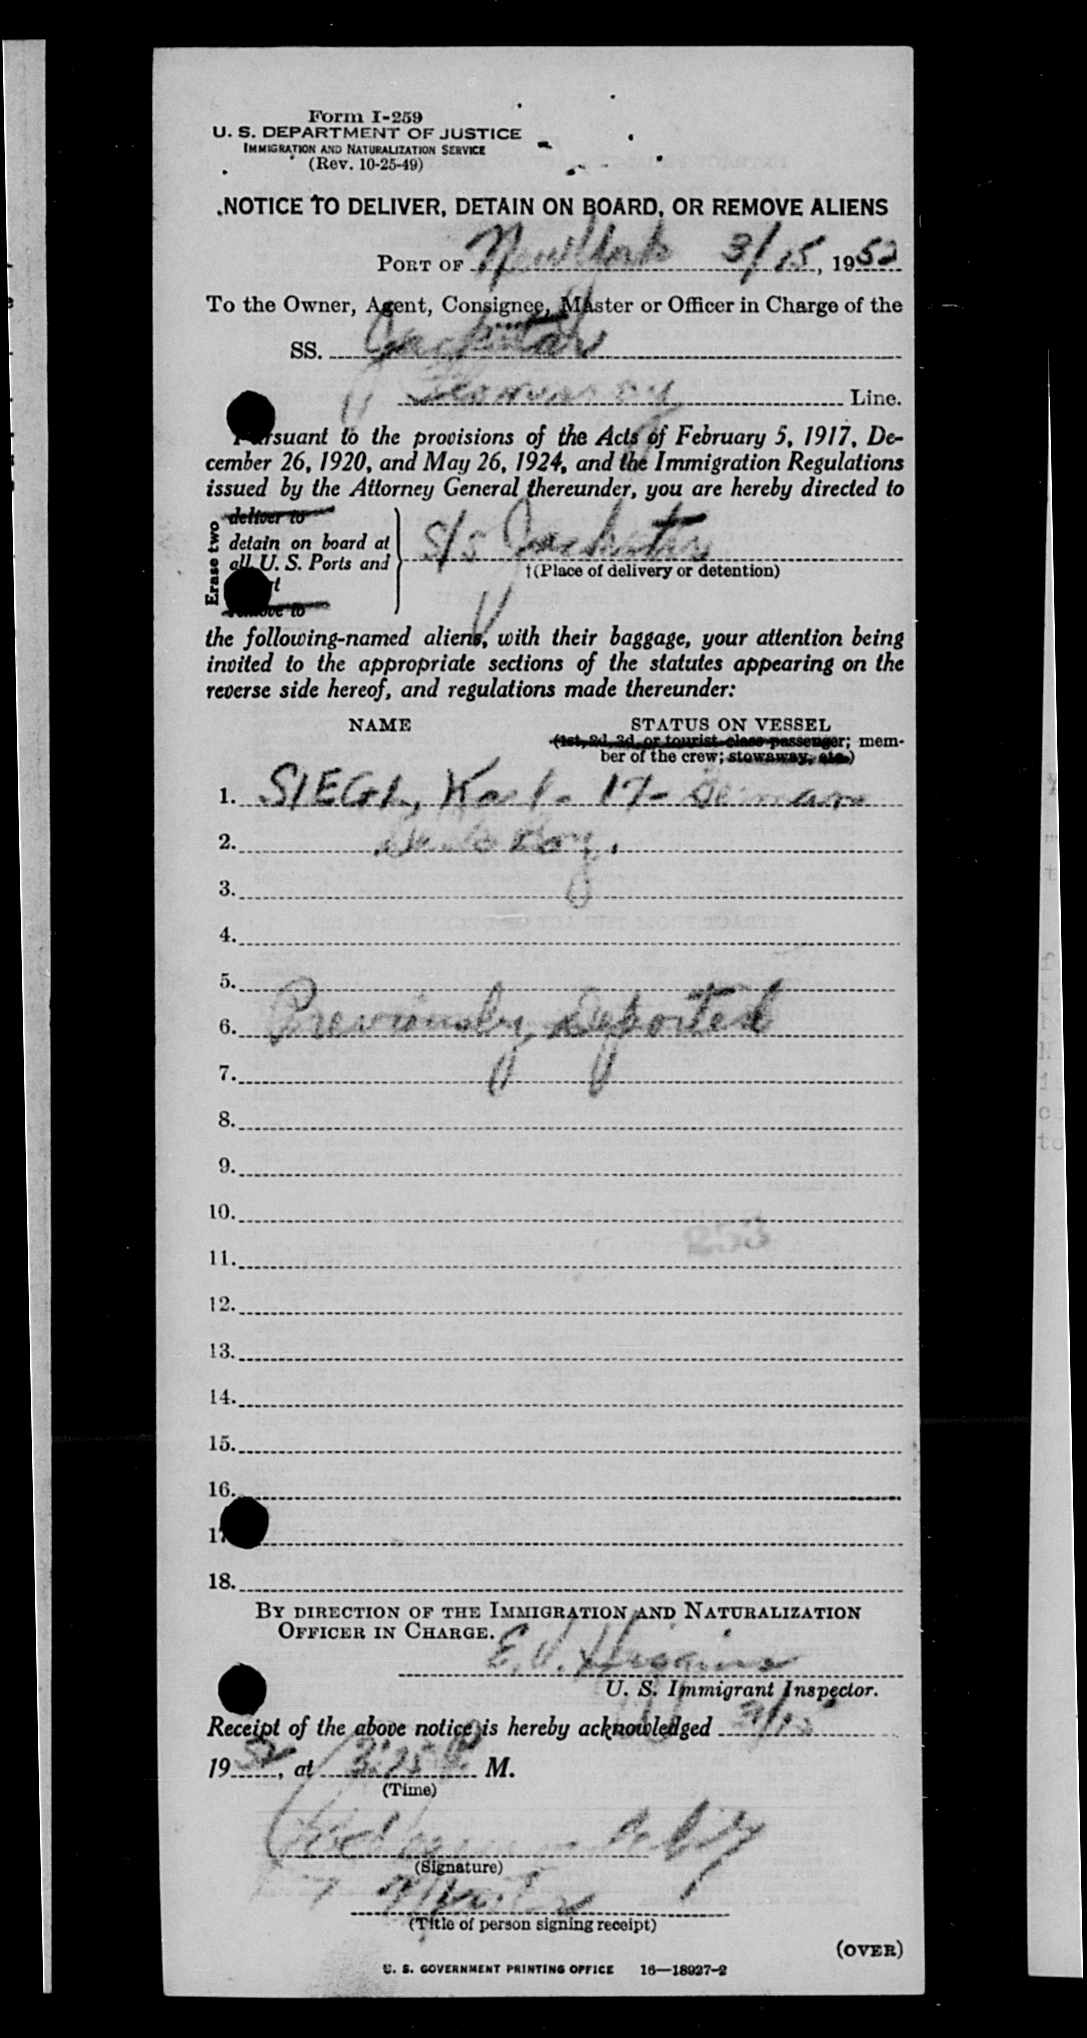 Form I-259
U. S. DEPARTMENT OF JUSTICE
IMMIGRATION AND NATURALIZATION SERVICE
(Rev. 10-25-49)
NOTICE TO DELIVER, DETAIN ON BOARD, OR REMOVE ALIENS
PORT OF New York 3/15, 1952
To the Owner, Agent, Consignee, Master or Officer in Charge of the
SS.
Line.
Pursuant to the provisions of the Acts of February 5, 1917, De-
cember 26, 1920, and May 26, 1924, and the Immigration Regulations
issued by the Attorney General thereunder, you are hereby directed to
Erase two
deliver to
detain on board at
all U. S. Ports and
remove to
S/S
†(Place of delivery or detention)
the following-named aliens, with their baggage, your attention being
invited to the appropriate sections of the statutes appearing on the
reverse side hereof, and regulations made thereunder:
NAME STATUS ON VESSEL
(1st, 2d, 3d, or tourist class passenger; mem-
ber of the crew; stowaway, etc.)
1. SIEGL, Karl - 17 - German
2. Deck Boy.
3.
4.
5.
6. Previously Deported
7.
8.
9.
10.
253
11.
12.
13.
14.
15.
16.
17
18.
BY DIRECTION OF THE IMMIGRATION AND NATURALIZATION
OFFICER IN CHARGE.
E. J. Higgins
U. S. Immigrant Inspector.
Receipt of the above notice is hereby acknowledged 3/15
1952, at 3:25 P. M.
(Time)
(Signature)
Master
(Title of person signing receipt)
(OVER)
U. S. GOVERNMENT PRINTING OFFICE 16—18927-2